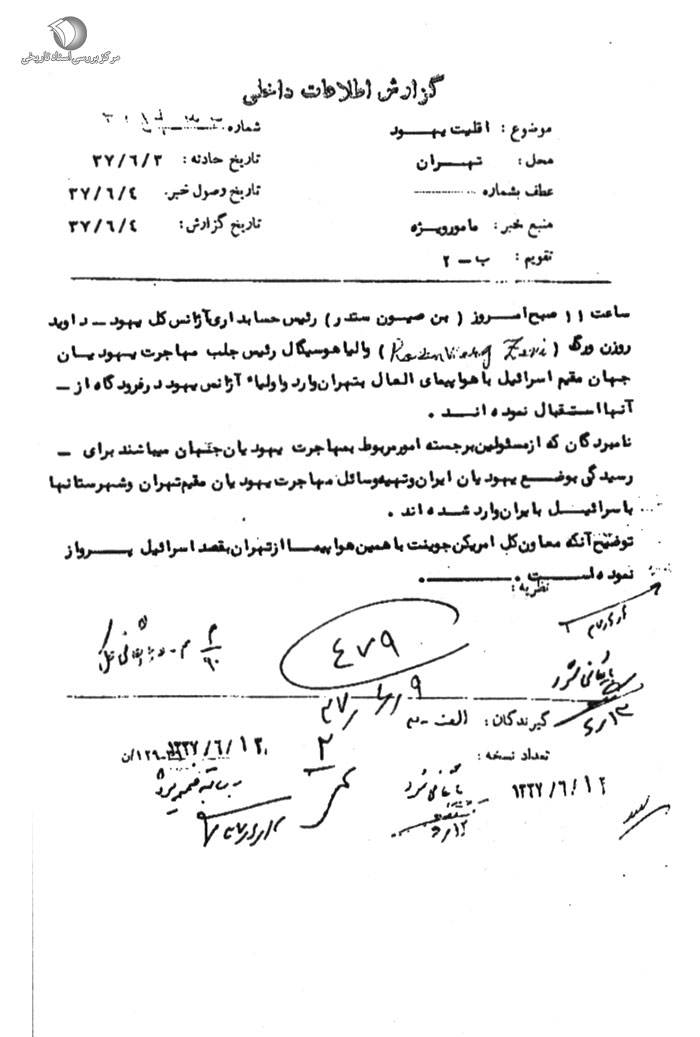 مرکز بررسی اسناد تاریخی
گزارش اطلاعات داخلی
موضوع : اقلیت یهود
شماره
محل : تهران
تاریخ حادثه : ۳۷/۶/۳
عطف بشماره
تاریخ وصول خبر. ۳۷/۶/٤
منبع خبر: مامورویژه
تاریخ گزارش: ۳۷/۶/٤
تقویم : ب - ۲
ساعت ۱۱ صبح امروز ( بن صیون سندر ) رئیس حسابداری آژانس کل یهود - داوید
روزن ورگ ( Zeni ) والیا هوسیگال رئیس جلب مهاجرت یهودیان
جهان مقیم اسرائیل با هواپیمای العال بتهران وارد و اولیاء آژانس یهود در فرودگاه از -
آنها استقبال نموده اند .
نامبردگان که از مسئولین برجسته امور مربوط بمهاجرت یهودیان جهان میباشند برای -
رسیدگی بوضع یهودیان ایران وتهیه وسائل مهاجرت یهودیان مقیم تهران وشهرستانها
باسرائیل بایران وارد شده اند .
توضیح آنکه معاون کل امریکن جوینت با همین هواپیما از تهران بقصد اسرائیل پرواز
نموده است .
نظریه :
٤۷۹
بایگانی شود
۶/۱۲
۳۷/۶/۹
گیرندگان : الف - س
۲
تعداد نسخه :
۱۳۳۷/۶/۱۲
بایگانی شود
۱۳۳۷/۶/۱۲
۶/۱۲